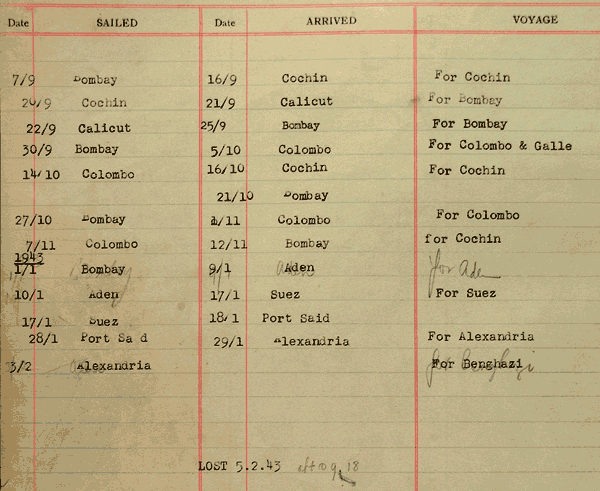 Date SAILED Date ARRIVED VOYAGE
7/9 Bombay 16/9 Cochin For Cochin
20/9 Cochin 21/9 Calicut For Bombay
22/9 Calicut 25/9 Bombay For Bombay
30/9 Bombay 5/10 Colombo For Colombo & Galle
14/10 Colombo 16/10 Cochin For Cochin
21/10 Bombay
27/10 Bombay 1/11 Colombo For Colombo
7/11 Colombo 12/11 Bombay for Cochin
1943
1/1 Bombay 9/1 Aden for Aden
10/1 Aden 17/1 Suez For Suez
17/1 Suez 18/1 Port Said
28/1 Port Sa d 29/1 Alexandria For Alexandria
3/2 Alexandria For Benghazi
LOST 5.2.43